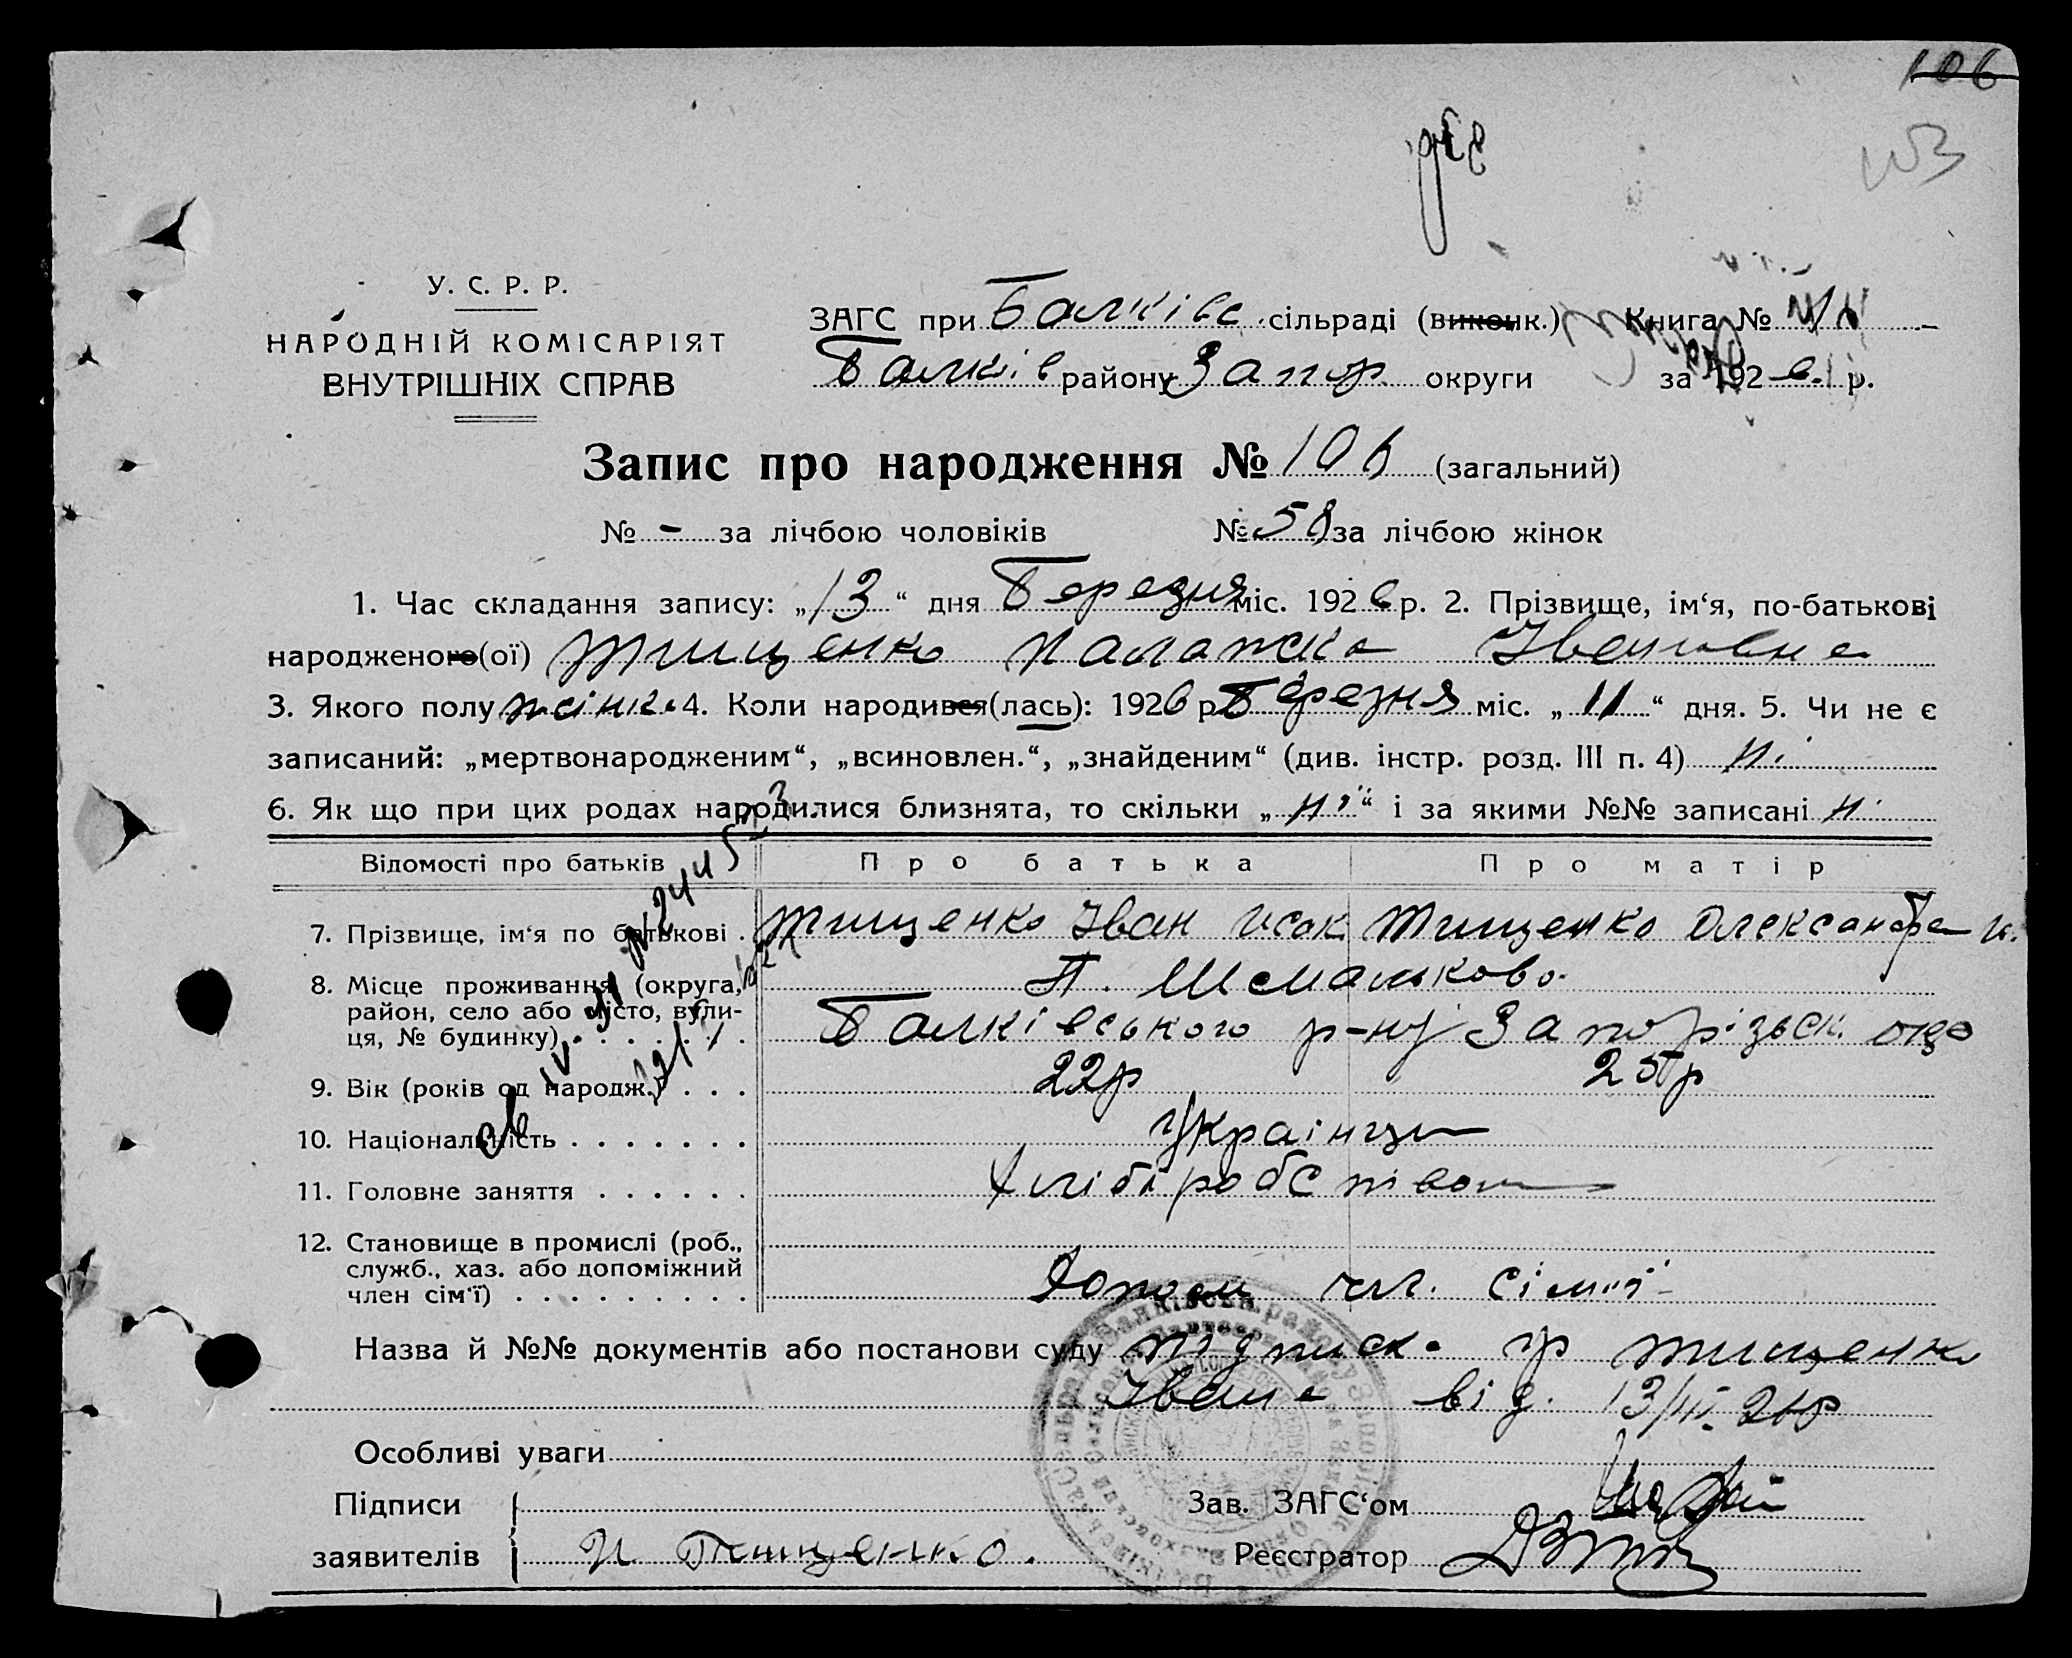 106
103
У. С. Р. Р.
НАРОДНІЙ КОМІСАРІЯТ
ВНУТРІШНІХ СПРАВ
ЗАГС при Балківс. сільраді (виконк.) Книга №
Балків району Запор. округи за 1926 р.
Запис про народження № 106 (загальний)
№ - за лічбою чоловіків № 58 за лічбою жінок
1. Час складання запису: „13“ дня Березня міс. 1926 р. 2. Прізвище, ім‘я, по-батькові
народженого(ої) Тищенко Палажка Івановна
3. Якого полу жіноч. 4. Коли народився(лась): 1926 р. Березня міс. „11“ дня. 5. Чи не є
записаний: „мертвонародженим“, „всиновлен.“, „знайденим“ (див. інстр. розд. III п. 4) Ні
6. Як що при цих родах народилися близнята, то скільки „ні“ і за якими №№ записані ні
Відомості про батьків Про батька Про матір
7. Прізвище, ім‘я по батькові . Тищенко Іван Исак. Тищенко Олександра И.
8. Місце проживання (округа,
район, село або місто, вули-
ця, № будинку) . . . . . . . П. Шемальково.
Балківського р-ну Запорізьск. окр
9. Вік (років од народж.) . . . 22р 25р
10. Національність . . . . . . . Українци
11. Головне заняття . . . . . . Хліборобством
12. Становище в промислі (роб.,
служб., хаз. або допоміжний
член сім‘ї) . . . . . . . . . Допом чл. сімї
Назва й №№ документів або постанови суду підписк. гр Тищенка
Івана від. 13/III. 26р
Особливі уваги
Підписи Зав. ЗАГС‘ом
заявителів И Тищенко. Реєстратор